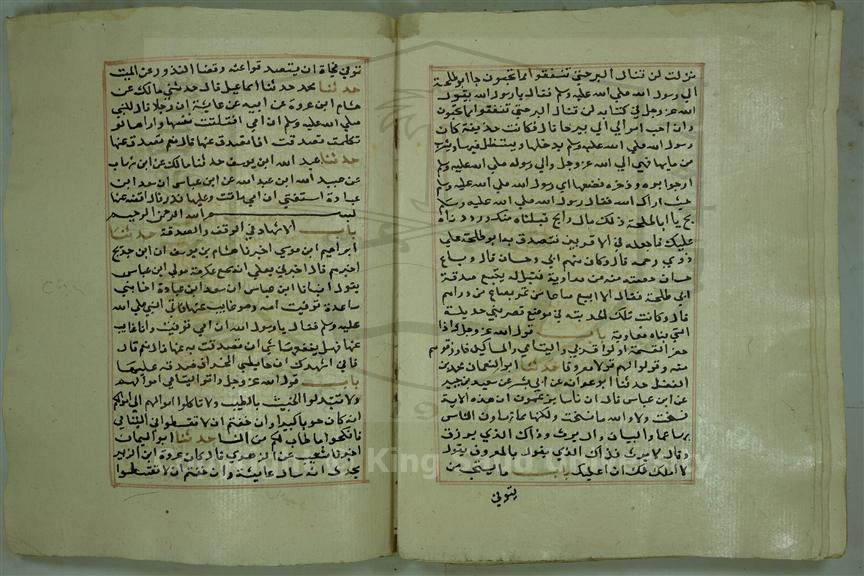 نزلت لن تنالوا البر حتى تنفقوا مما تحبون جا ابو طلحة
الي رسول الله صلي الله عليه وسلم فقال يا رسول الله يقول
الله عز وجل في كتابه لن تنالوا البر حتى تنفقوا مما تحبون
وان احب اموالي الي بيرحا قال فكانت حديقة كان
رسول الله صلي الله عليه وسلم يدخلها ويستظل فيها ويشرب
من مايها فهي الي الله عز وجل والي رسوله صلي الله عليه وسلم
ارجوا بره وذخره فضعها اي رسول الله صلي الله عليه وسلم
حيث اراك الله فقال رسول الله صلي الله عليه وسلم
بخ يا ابا طلحة ذلك مال رابح قبلناه منك ورددناه
عليك فاجعله في الاقربين فتصدق به ابو طلحة علي
ذوي رحمه قال وكان منهم ابي وحسان قال وباع
حسان حصته منه من معاوية فقيل له تبيع صدقة
ابي طلحة فقال الا ابيع صاعا من تمر بصاع من دراهم
قال وكانت تلك الحديقة في موضع قصر بني حديلة
الذي بناه معاوية باب قول الله عز وجل واذا
حضر القسمة اولوا القربي واليتامي والمساكين فارزقوهم
منه وقولوا لهم قولا معروفا حدثنا ابو النعمان محمد بن
الفضل حدثنا ابو عوانة عن ابي بشر عن سعيد بن جبير
عن ابن عباس قال ان ناسا يزعمون ان هذه الاية
نسخت ولا والله ما نسخت ولكنها مما تهاون الناس
بها هما واليان وال يرث وذاك الذي يرزق
وقال لا يرث فذاك الذي يقول بالمعروف يقول
لا املك لك ان اعطيك باب ما يستحب من
يتوفي
توفي فجاة ان يتصدقوا عنه وقضا النذور عن الميت
حدثنا محمد حدثنا اسماعيل قال حدثني مالك عن
هشام ابن عروة عن ابيه عن عايشة ان رجلا قال للنبي
صلي الله عليه وسلم ان امي افتلتت نفسها واراها لو
تكلمت تصدقت افاتصدق عنها قال نعم تصدق عنها
حدثنا عبد الله ابن يوسف حدثنا مالك عن ابن شهاب
عن عبيد الله ابن عبد الله عن ابن عباس ان سعد ابن
عبادة استفتي ان امي ماتت وعليها نذر قال اقضه عنها
بسم الله الرحمن الرحيم
باب الاشهاد في الوقف والصدقة حدثنا
ابراهيم ابن موسي اخبرنا هشام بن يوسف ان ابن جريج
اخبرهم قال اخبرني يعلي انه سمع عكرمة مولي ابن عباس
يقول انبانا ابن عباس ان سعد ابن عبادة اخا بني
ساعدة توفيت امه وهو غايب عنها فاتي النبي صلي الله
عليه وسلم فقال يا رسول الله ان امي توفيت وانا غايب
عنها فهل ينفعها شيء ان تصدقت به عنها قال نعم قال
فاني اشهدك ان حايطي المخراف صدقة عليها
باب قول الله عز وجل واتوا اليتامي اموالهم
ولا تتبدلوا الخبيث بالطيب ولا تاكلوا اموالهم الي اموالكم
انه كان حوبا كبيرا وان خفتم ان لا تقسطوا في اليتامي
فانكحوا ما طاب لكم من النسا حدثنا ابو اليمان
اخبرنا شعيب عن الزهري قال كان عروة ابن الزبير
يحدث انه سال عايشة وان خفتم ان لا تقسطوا